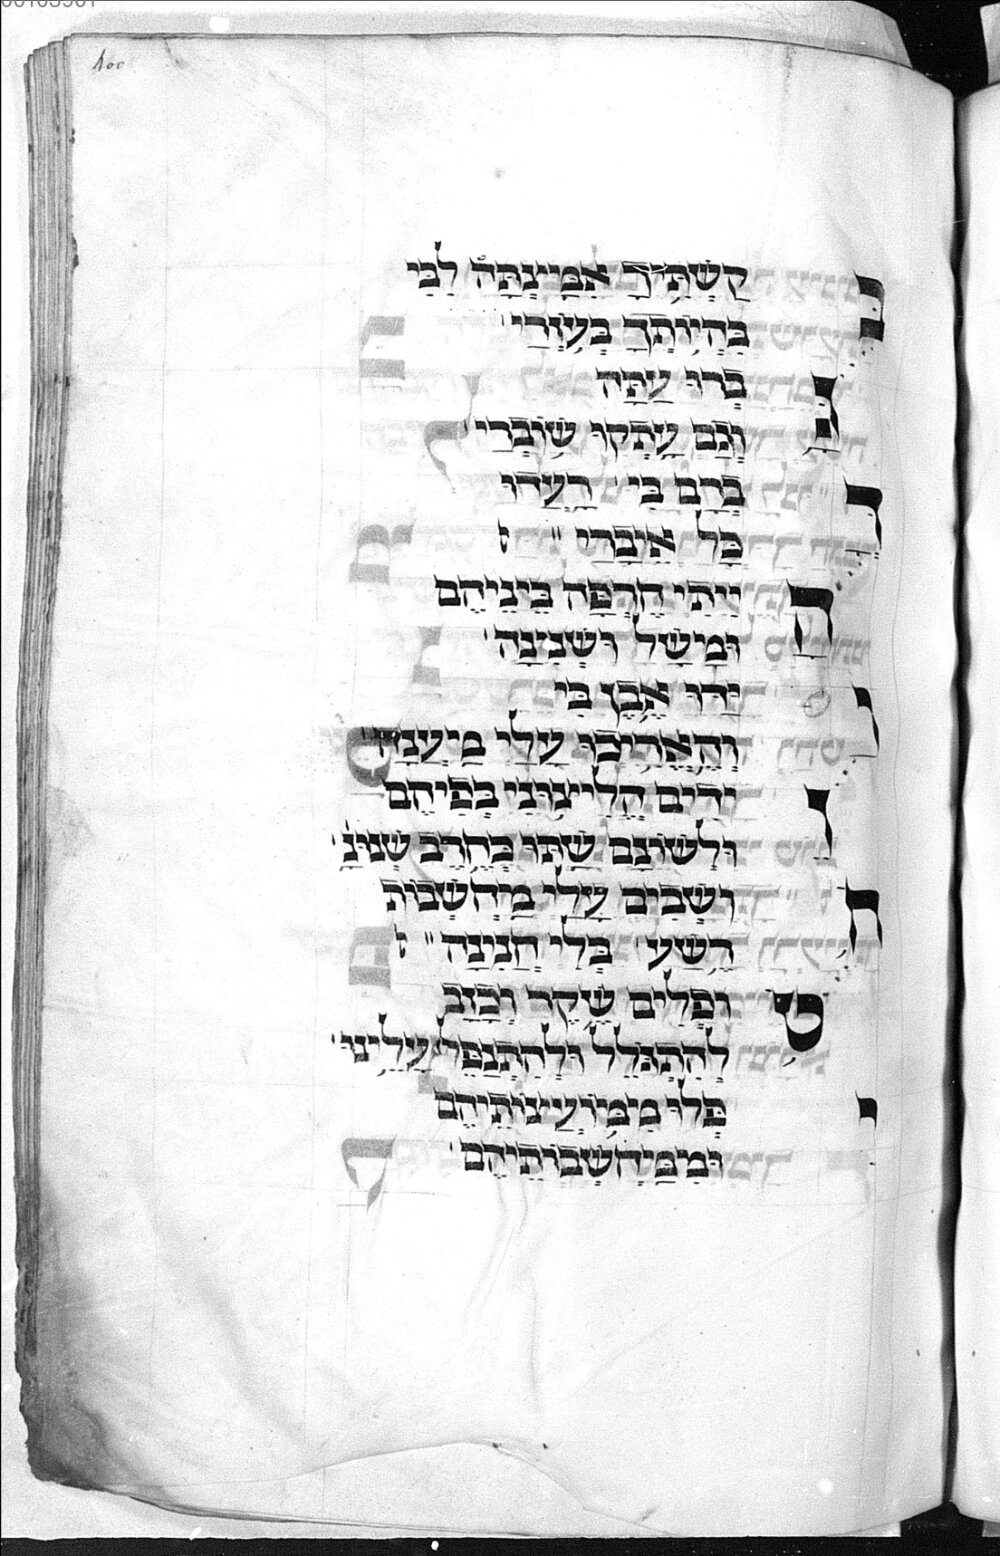 00103901
100
בקשתיך אמיצתה לבי
בהיותך בעוזרי
גברו עתה
וגם עתקו שוברי
דברם בי רעדו
כל איברי
הייתי חרפה ביניהם
ומישל ושנינה
וידו אבן בי
והאריכו עלי מיענה
זירים הלייצוני בפיהם
ולשונם שתו כחרב שנונ
חושבים עלי מיחשבות
רשע בלי חנינה
טופלים שקר וכזב
להתגלל ולהתנפל עלינו
יפלו מימועיצותיהם
וממיחשבותיהם